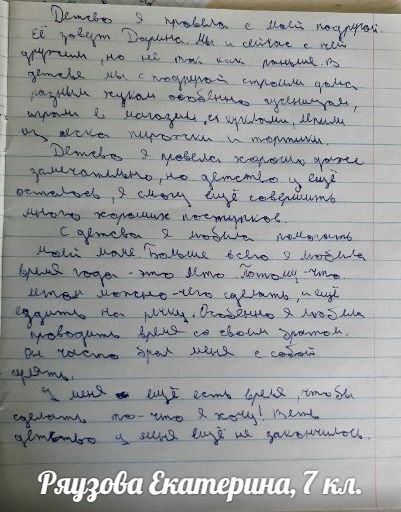 Детство я провела с моей подругой.
Её зовут Дарина. Мы и сейчас с ней
дружим, но не так как раньше. В
детсве мы с подругой строили дома
разным жукам особенно гусеницам,
играли в магазин, с куклами, лепили
из песка пирожки и тортики.
Детсво я провела хорошо даже
замечательно, но детство у ещё
осталось, я смогу ещё совершить
много хороших поступков.
С детсва я любила помогать
моей маме. Больше всего я любила
время года - это лето. Потому-что
летом можно-чего сделать, и ещё
ездить на речку. Особенно я любила
проводить время со своим братом.
Он часто брал меня с собой
гулять.
У меня ещё есть время, чтобы
сделать то-что я хочу! Ведь
детство у меня ещё не закончилось.
Ряузова Екатерина, 7 кл.